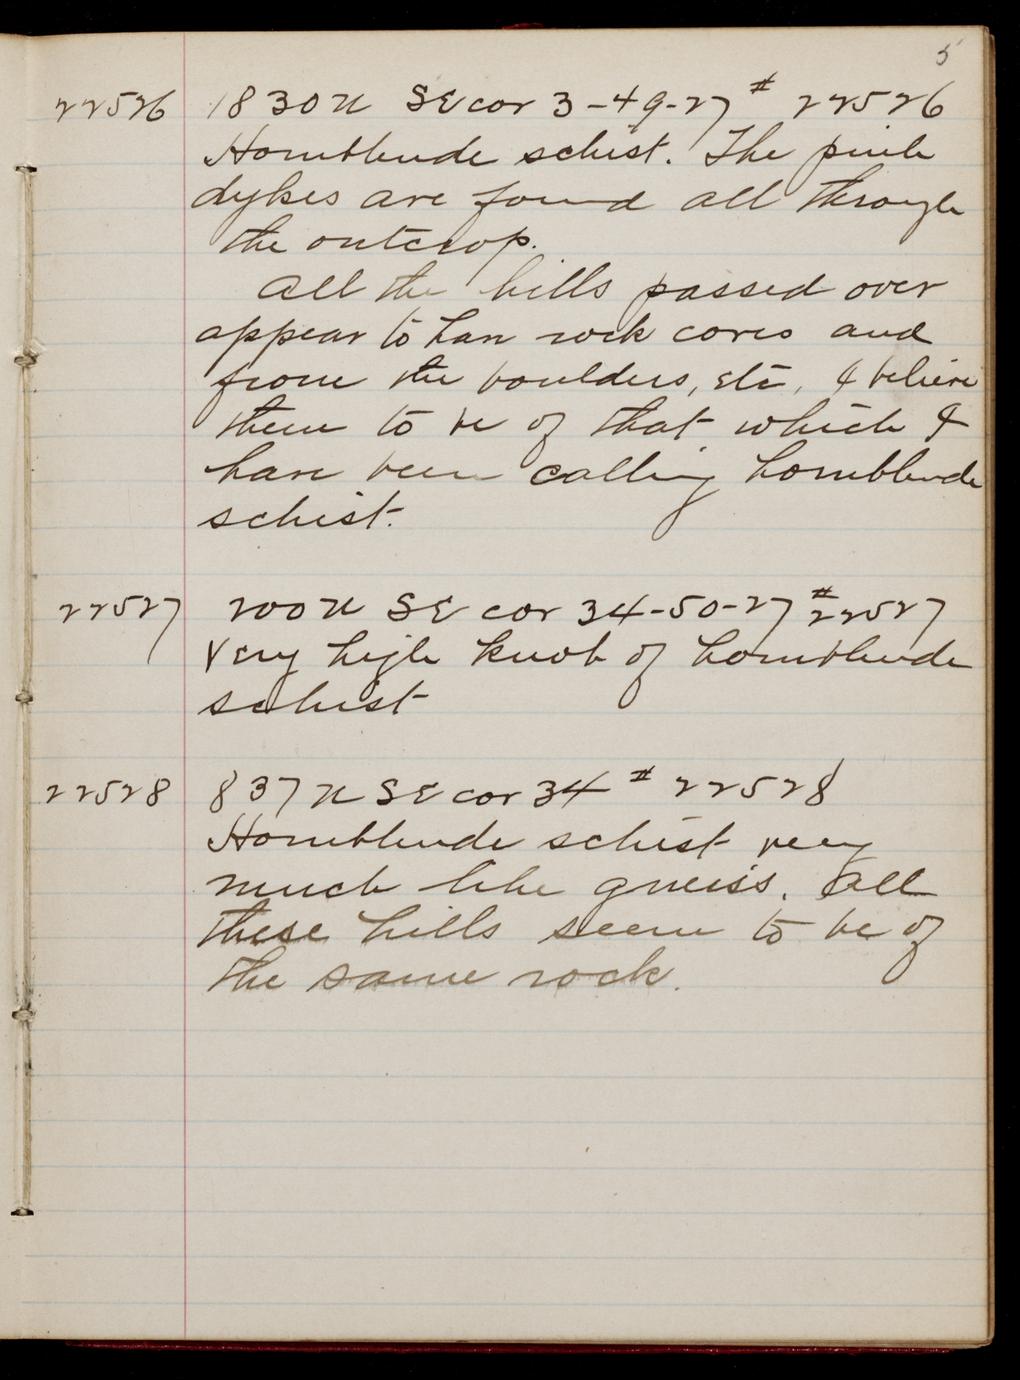 5
22526 1830 N SE cor 3-49-27 # 22526
Hornblende schist. The pink
dykes are found all through
the outcrop.
All the hills passed over
appear to have rock cores and
from the boulders, etc, I believe
them to be of that which I
have been calling hornblende
schist.
22527 200 N SE cor 34-50-27 # 22527
Very high knob of hornblende
schist
22528 837 N SE cor 34 # 22528
Hornblende schist very
much like gneiss. All
these hills seem to be of
the same rock.